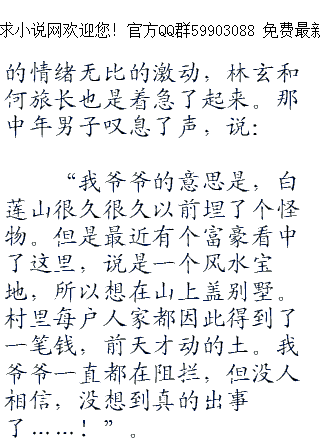 求小说网欢迎您！官方QQ群59903088 免费最新
的情绪无比的激动，林玄和
何旅长也是着急了起来。那
中年男子叹息了声，说：
“我爷爷的意思是，白
莲山很久很久以前埋了个怪
物。但是最近有个富豪看中
了这里，说是一个风水宝
地，所以想在山上盖别墅。
村里每户人家都因此得到了
一笔钱，前天才动的土。我
爷爷一直都在阻拦，但没人
相信，没想到真的出事
了……！”。